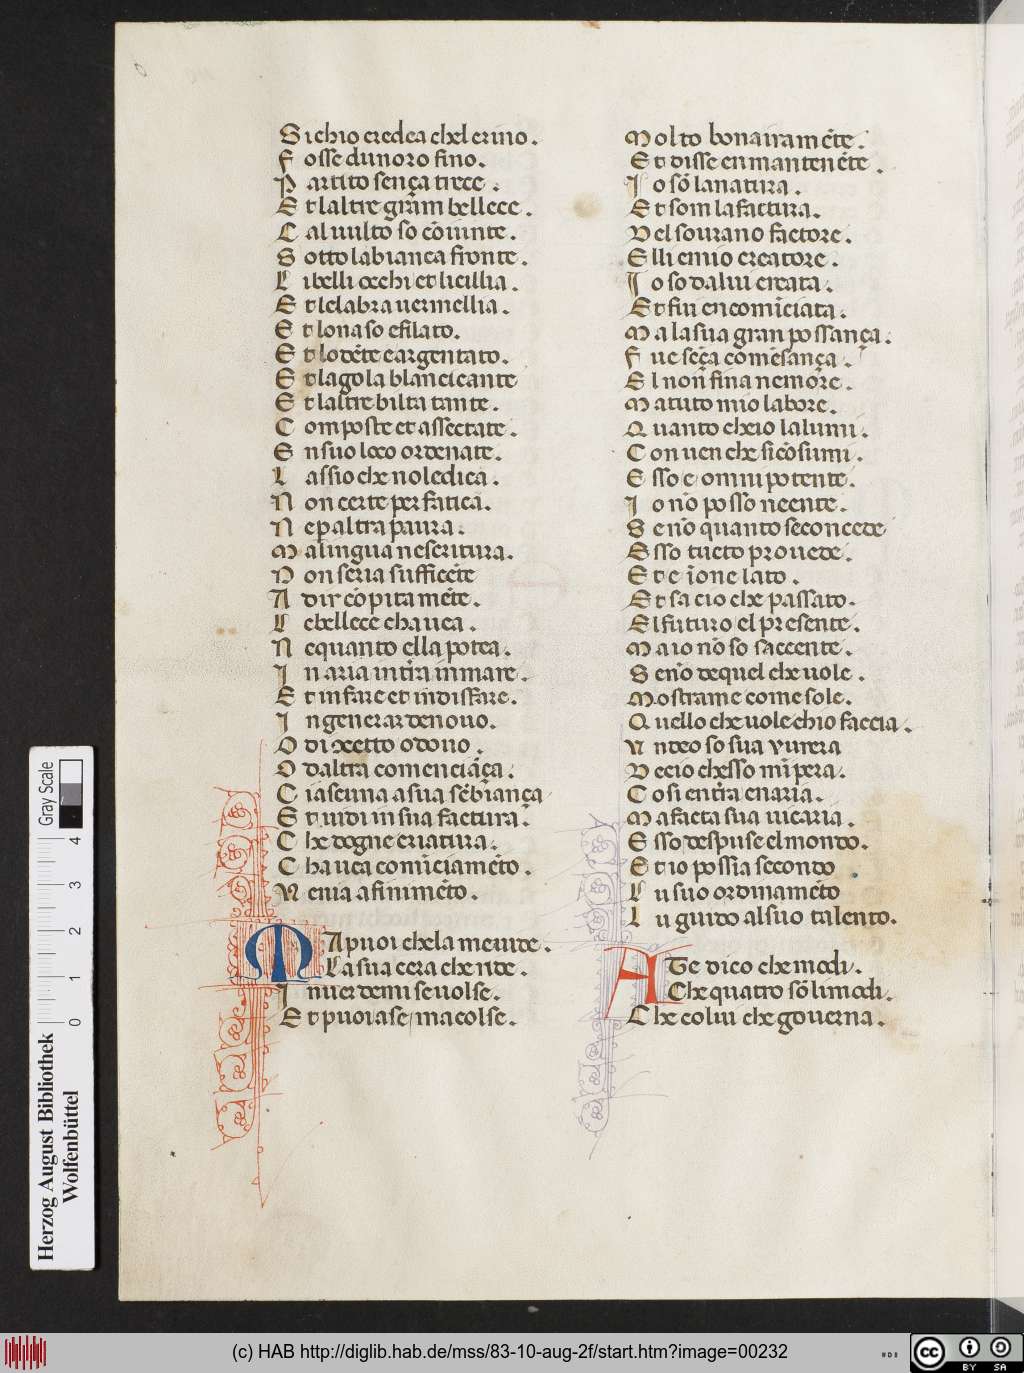 Sichio credea chel crino.
Fosse dunoro fino.
Partito sença trece.
Et laltre grãm bellece.
Cal uulto so cõiunte.
Sotto labianca fronte.
Li belli occhi et licillia.
Et le labra uermellia.
Et lo naso efilato.
Et lo dẽte eargentato.
Et la gola blancicante
Et laltre bilta tante.
Composte et assectate.
En suo loco ordenate.
Lassio che no le dica.
Non certe per fatica.
Ne per altra paura.
Ma lingua ne scritura.
Non seria sufficẽte
A dir cõpitamẽte.
Le bellece chauea.
Ne quanto ella potea.
In aria in tr̃a in mare.
Et in fare et in disfare.
In generar de nouo.
O di cõcetto o douo.
O daltra comenciãça.
Ciascuna a sua sẽbiança
Et uidi in sua factura.
Che dogne criatura.
Chauea comĩciamẽto.
Nenia a finimẽto.
MA puoi chela me uide.
La sua cera che ride.
In uer de mi se uolse.
Et puoi a se macolse.
Molto bonairamẽte.
Et disse en mantenẽte.
Io sõ la natura.
Et som la factura.
Del sourano factore.
Elli e mio creatore.
Io so da lui creata.
Et fui encomĩciata.
Ma la sua gran possança.
Fue sẽça comẽsança.
El non fina ne more.
Ma tuto mio labore.
Quanto cheio lalumi.
Conuen che si cõsumi.
Esso e omnipotente.
Io nõ posso neente.
Se nõ quanto se concede
Esso tucto prouede.
Et e ĩ one lato.
Et sa cio che passato.
El futuro el presente.
Ma io nõ so saccente.
Se nõ de quel che uole.
Mostrame come sole.
Quello che uole chio faccia.
Unde o so sua vurera
De cio chesso mĩpera.
Cosi en tr̃a en aria.
Ma facta sua uicaria.
Esso despuse el mondo.
Et io possia secondo
Lu suo ordinamẽto
Lu guido al suo talento.
A Te dico che modi.
Che quatro sõ li modi.
Che colui che gouerna.
Herzog August Bibliothek
Wolfenbüttel
0 1 2 3 4
Gray Scale
(c) HAB http://diglib.hab.de/mss/83-10-aug-2f/start.htm?image=00232
cc BY SA